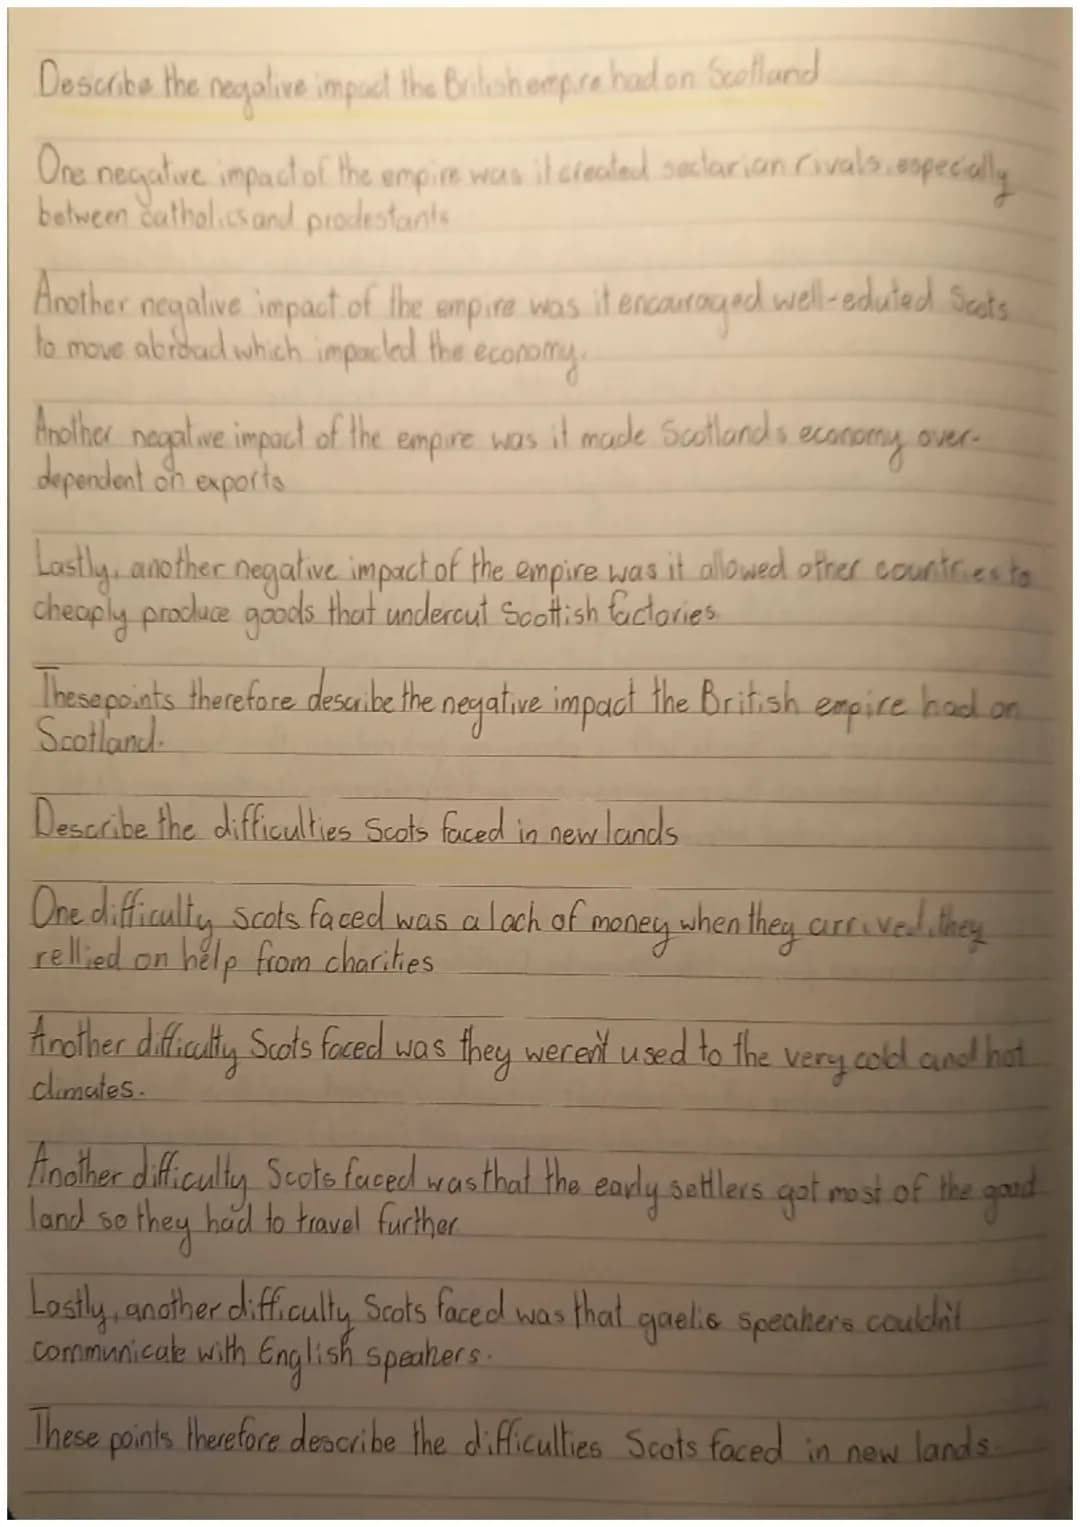 Describe the negative impact the British empire had on Scotland
One negative impact of the empire was it created sectarian rivals, especially
between catholics and prodestants
Another negative impact of the empire was it encouraged well-eduted Scots
to move abroad which impacted the economy.
Another negative impact of the empire was it made Scotlands economy over-
dependent on exports
Lastly, another negative impact of the empire was it allowed other countries to
cheaply produce goods that undercut Scottish factories.
These points therefore describe the negative impact the British empire had on
Scotland.
Describe the difficulties Scots faced in new lands
One difficulty Scots faced was a lack of money when they arrived, they
rellied on help from charities
Another difficulty Scots faced was they weren't used to the very cold and hot
climates.
Another difficulty Scots faced was that the early settlers got most of the good
land so they had to travel further
Lastly, another difficulty Scots faced was that gaelic speakers couldn't
communicate with English speakers.
These points therefore describe the difficulties Scots faced in new lands.